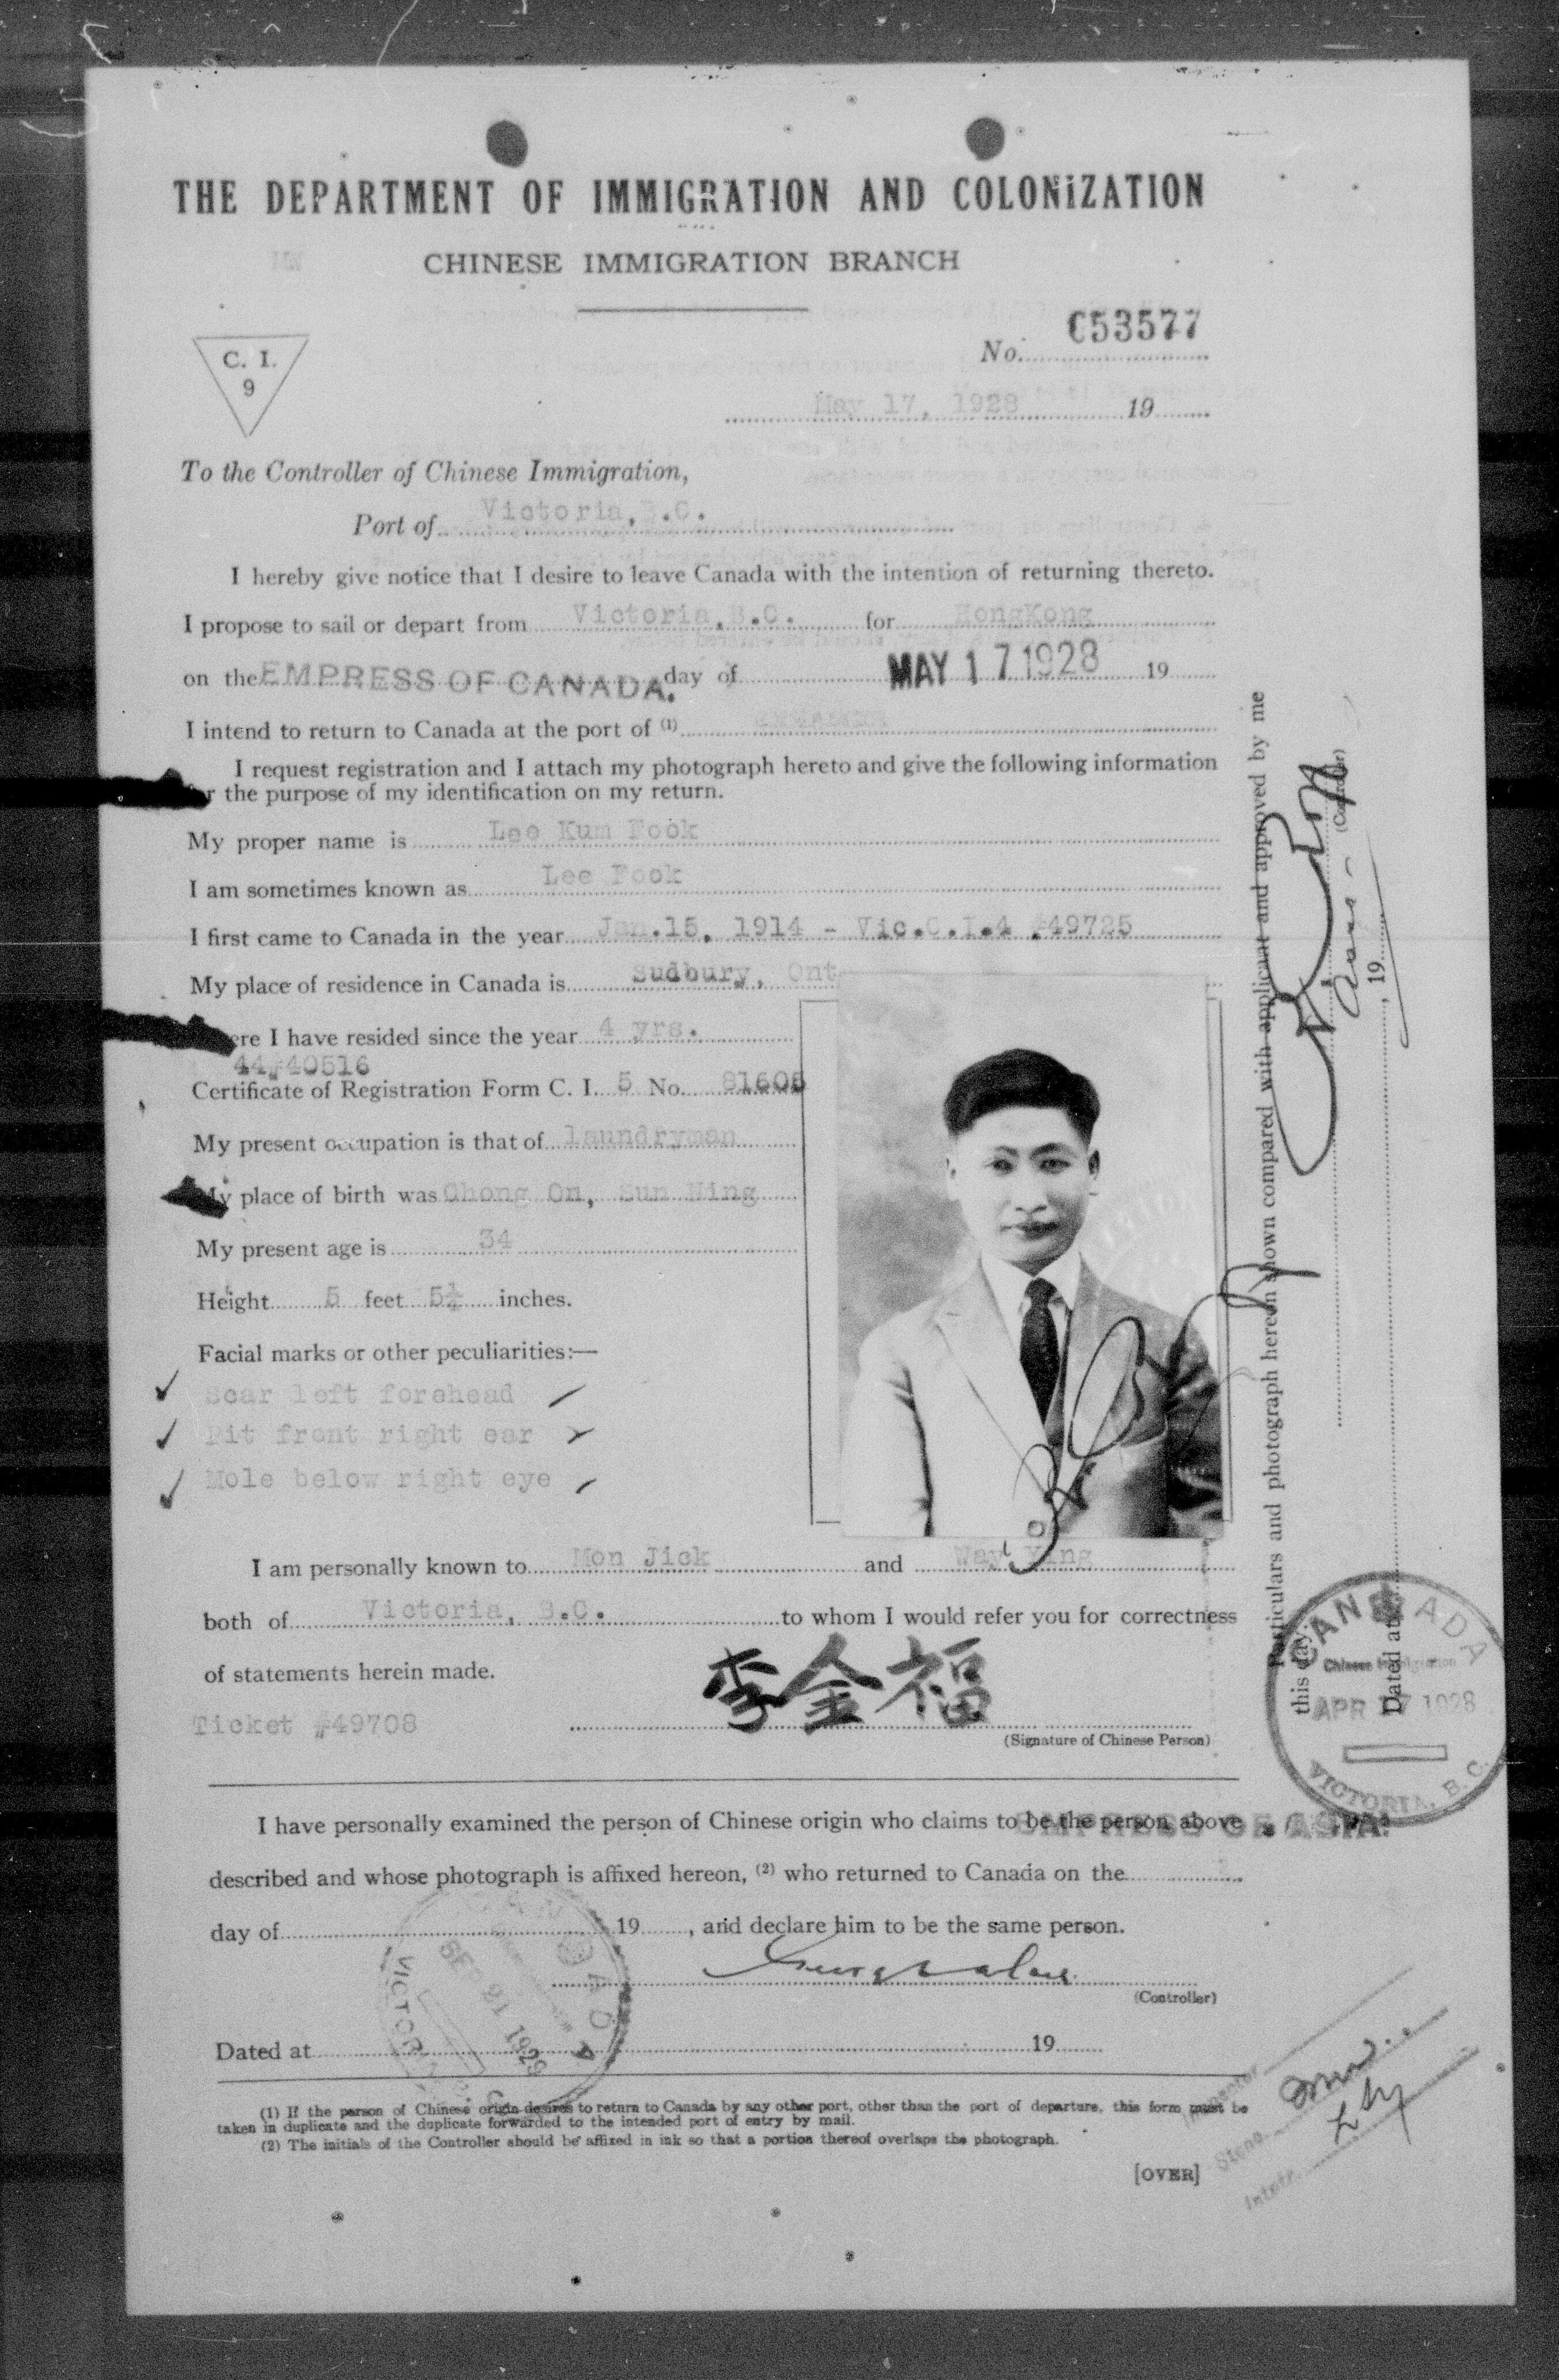 THE DEPARTMENT OF IMMIGRATION AND COLONIZATION
CHINESE IMMIGRATION BRANCH
C. I.
9
No. C53577
May 17, 1928 19
To the Controller of Chinese Immigration,
Port of Victoria, B.C.
I hereby give notice that I desire to leave Canada with the intention of returning thereto.
I propose to sail or depart from Victoria, B.C. for HongKong
on the EMPRESS OF CANADA. day of MAY 17 1928 19
I intend to return to Canada at the port of (1)
I request registration and I attach my photograph hereto and give the following information
the purpose of my identification on my return.
My proper name is Lee Kum Fook
I am sometimes known as Lee Fook
I first came to Canada in the year Jan.15, 1914 - Vic.C.I.4 #49725
My place of residence in Canada is Sudbury, Ont
I have resided since the year 4 yrs.
44#40516
Certificate of Registration Form C. I. 5 No. 81605
My present occupation is that of laundryman
My place of birth was Chong On, Sun Ning
My present age is 34
Height 5 feet 5½ inches.
Facial marks or other peculiarities:—
Scar left forehead
Pit front right ear
Mole below right eye
I am personally known to Mon Jick and Way Ying
both of Victoria, B.C. to whom I would refer you for correctness
of statements herein made.
李金福
Ticket #49708
(Signature of Chinese Person)
I have personally examined the person of Chinese origin who claims to be the person above
EMPRESS OF ASIA.
described and whose photograph is affixed hereon, (2) who returned to Canada on the
day of 19 , and declare him to be the same person.
(Controller)
Dated at 19
(1) If the person of Chinese origin desires to return to Canada by any other port, other than the port of departure, this form must be
taken in duplicate and the duplicate forwarded to the intended port of entry by mail.
(2) The initials of the Controller should be affixed in ink so that a portion thereof overlaps the photograph.
[OVER]
Particulars and photograph hereon shown compared with applicant and approved by me
this day
(Controller)
Dated at , 19
CANADA
Chinese Immigration
APR 17 1928
VICTORIA, B.C.
CANADA
SEP 21 1929
VICTORIA
Inspector
Steno.
Intptr.